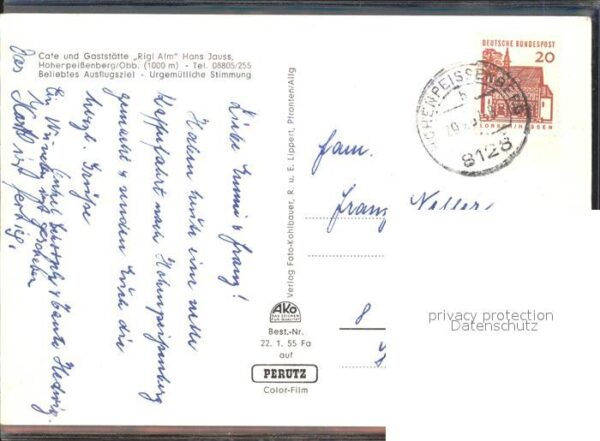 Cafe und Gaststätte „Rigi Alm" Hans Jauss,
Hoherpeißenberg/Obb. (1000 m) - Tel. 08805/255
Beliebtes Ausflugsziel - Urgemütliche Stimmung
Liebe Emmi & Franz!
Haben heute eine nette
Kaffeefahrt nach Hohenpeißenberg
gemacht & senden Euch die
herzl. Grüße
Hedwig.
Ein Wunder ist geschehen
Das
ist fertig!
Verlag Foto-Kohlbauer, R. u. E. Lippert, Pfronten/Allg
AKO
DAS ZEICHEN
FÜR QUALITÄT
Best.-Nr.
22. 1. 55 Fa
auf
PERUTZ
Color-Film
DEUTSCHE BUNDESPOST
20
LORSCH/HESSEN
HOHENPEISSENBERG
8128
Fam.
Franz Neller
8
privacy protection
Datenschutz